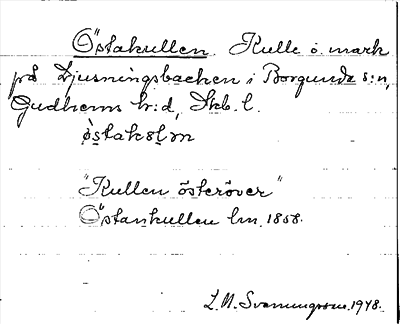 Östakullen. Kulle o. mark
på Ljusningsbacken i Borgunda s:n,
Gudhems h:d, Skb. l.
"Kullen österöver"
Östankullen lm. 1858.
L. N. Svenungsson 1948.